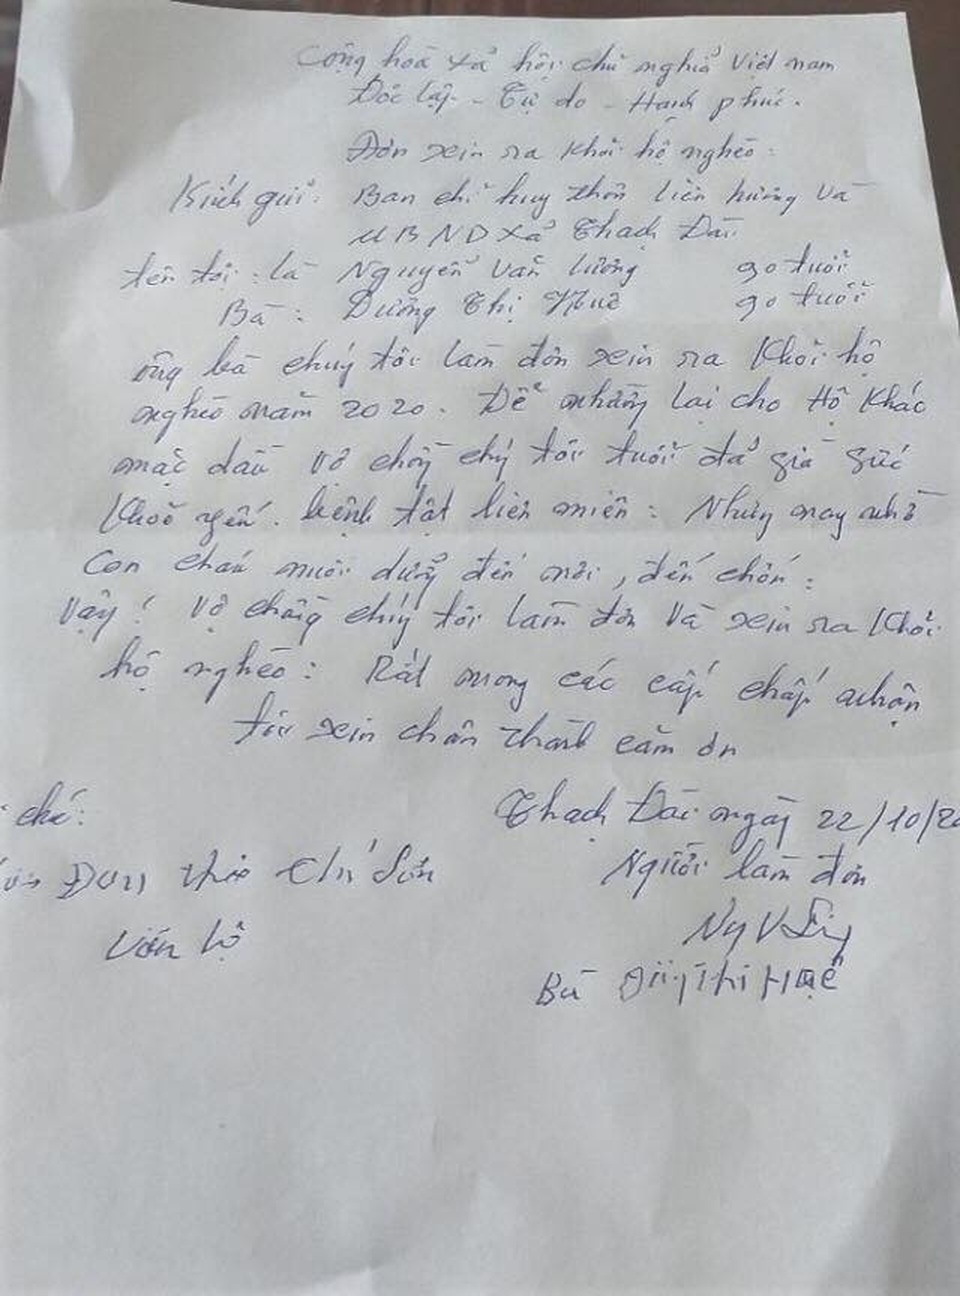 Cộng hoà xả hội chủ nghiả Việt nam
Độc lập - Tự do - Hạnh phúc.
Đơn xin ra khỏi hộ nghèo:
Kính gửi: Ban chỉ huy thôn liên hương và
UBND xả Thạch Đài
tên tôi: là Nguyễn Văn lương 90 tuổi
Bà: Dương Thị Huê 90 tuổi
ông bà chúng tôi làm đơn xin ra khỏi hộ
nghèo năm 2020. Để nhường lại cho Hộ Khác
mặc dầu vợ chồng chúng tôi tuổi đả già sức
khoẻ yếu. bệnh tật liên miên: Nhưng may nhờ
Con cháu nuôi dưỡng đến nơi, đến chốn:
Vậy! Vợ chồng chúng tôi làm đơn và xin ra khỏi
hộ nghèo: Rất mong các cấp chấp nhận
tôi xin chân thành cảm ơn
chú: Thạch Đài ngày 22/10/20
Đơn Người làm đơn
Bà Thị Huệ